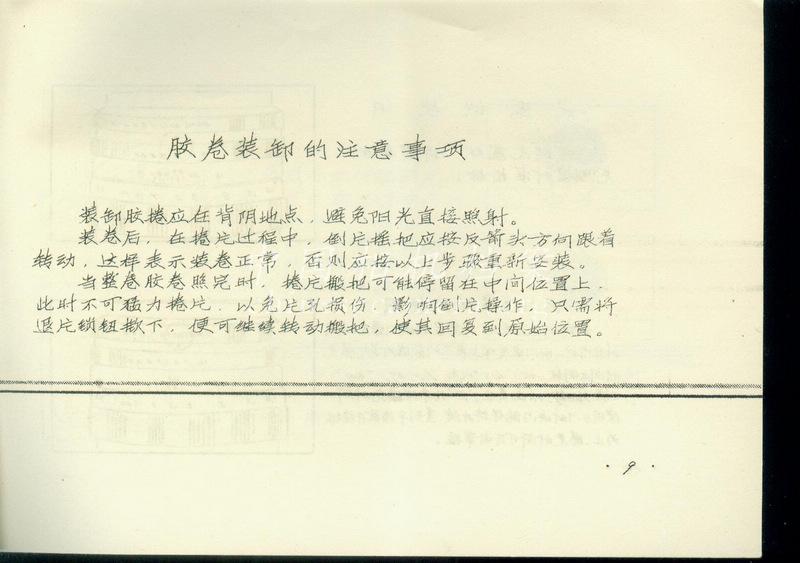 胶卷装卸的注意事项
装卸胶捲应在背阴地点，避免阳光直接照射。
装卷后，在捲片过程中，倒片摇把应按反箭头方向跟着
转动，这样表示装卷正常，否则应按以上步骤重新安装。
当整卷胶卷照完时，捲片搬把可能停留在中间位置上，
此时不可猛力捲片，以免片孔损伤，影响倒片操作，只需将
退片锁钮揿下，便可继续转动搬把，使其回复到原始位置。
·9·